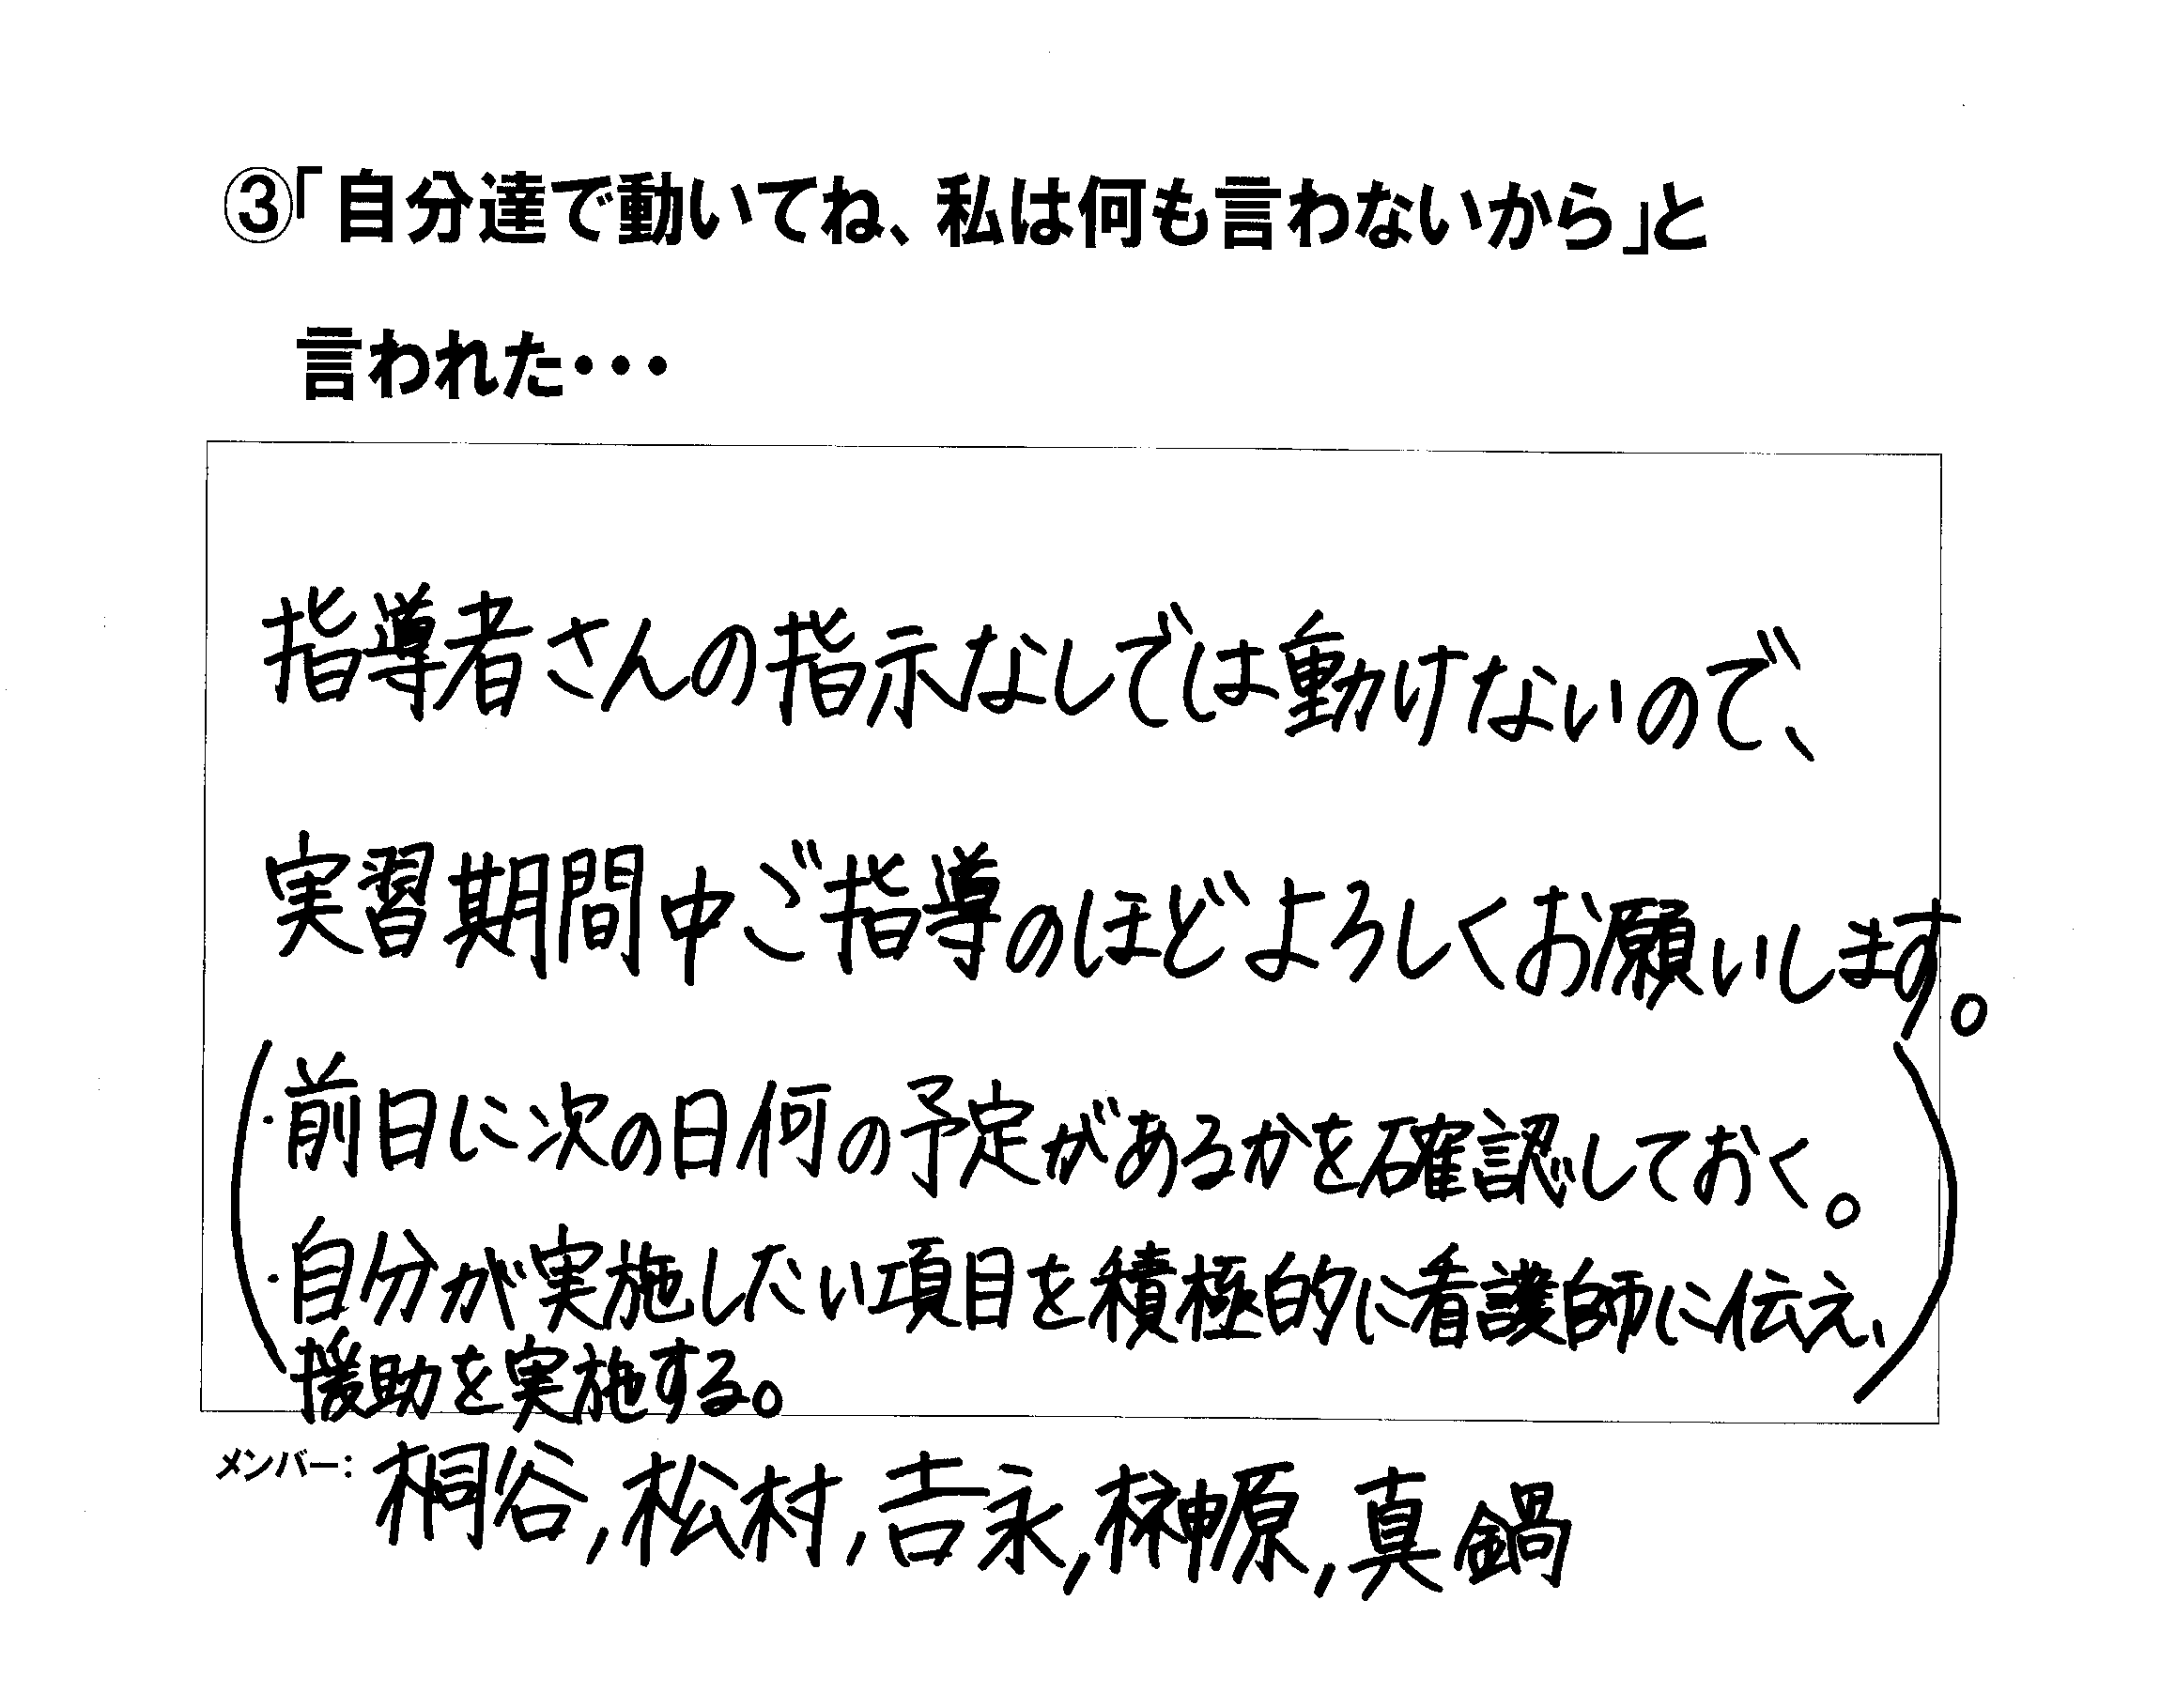 ③「自分達で動いてね、私は何も言わないから」と
言われた・・・
指導者さんの指示なしでは動けないので、
実習期間中ご指導のほどよろしくお願いします。
(・前日に次の日何の予定があるかを確認しておく。
・自分が実施したい項目を積極的に看護師に伝え、
援助を実施する。)
メンバー：桐谷,松村,吉永,榊原,真鍋